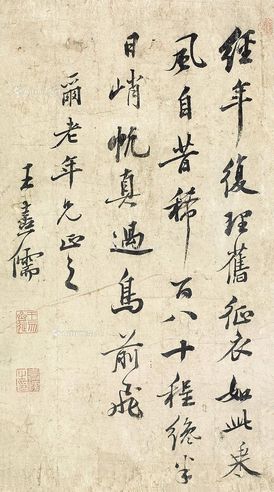 經年復理舊征衣如此寒
風自昔稀百八十程纔半
日峭帆真過鳥前飛
爾老年兄正之
王熹儒